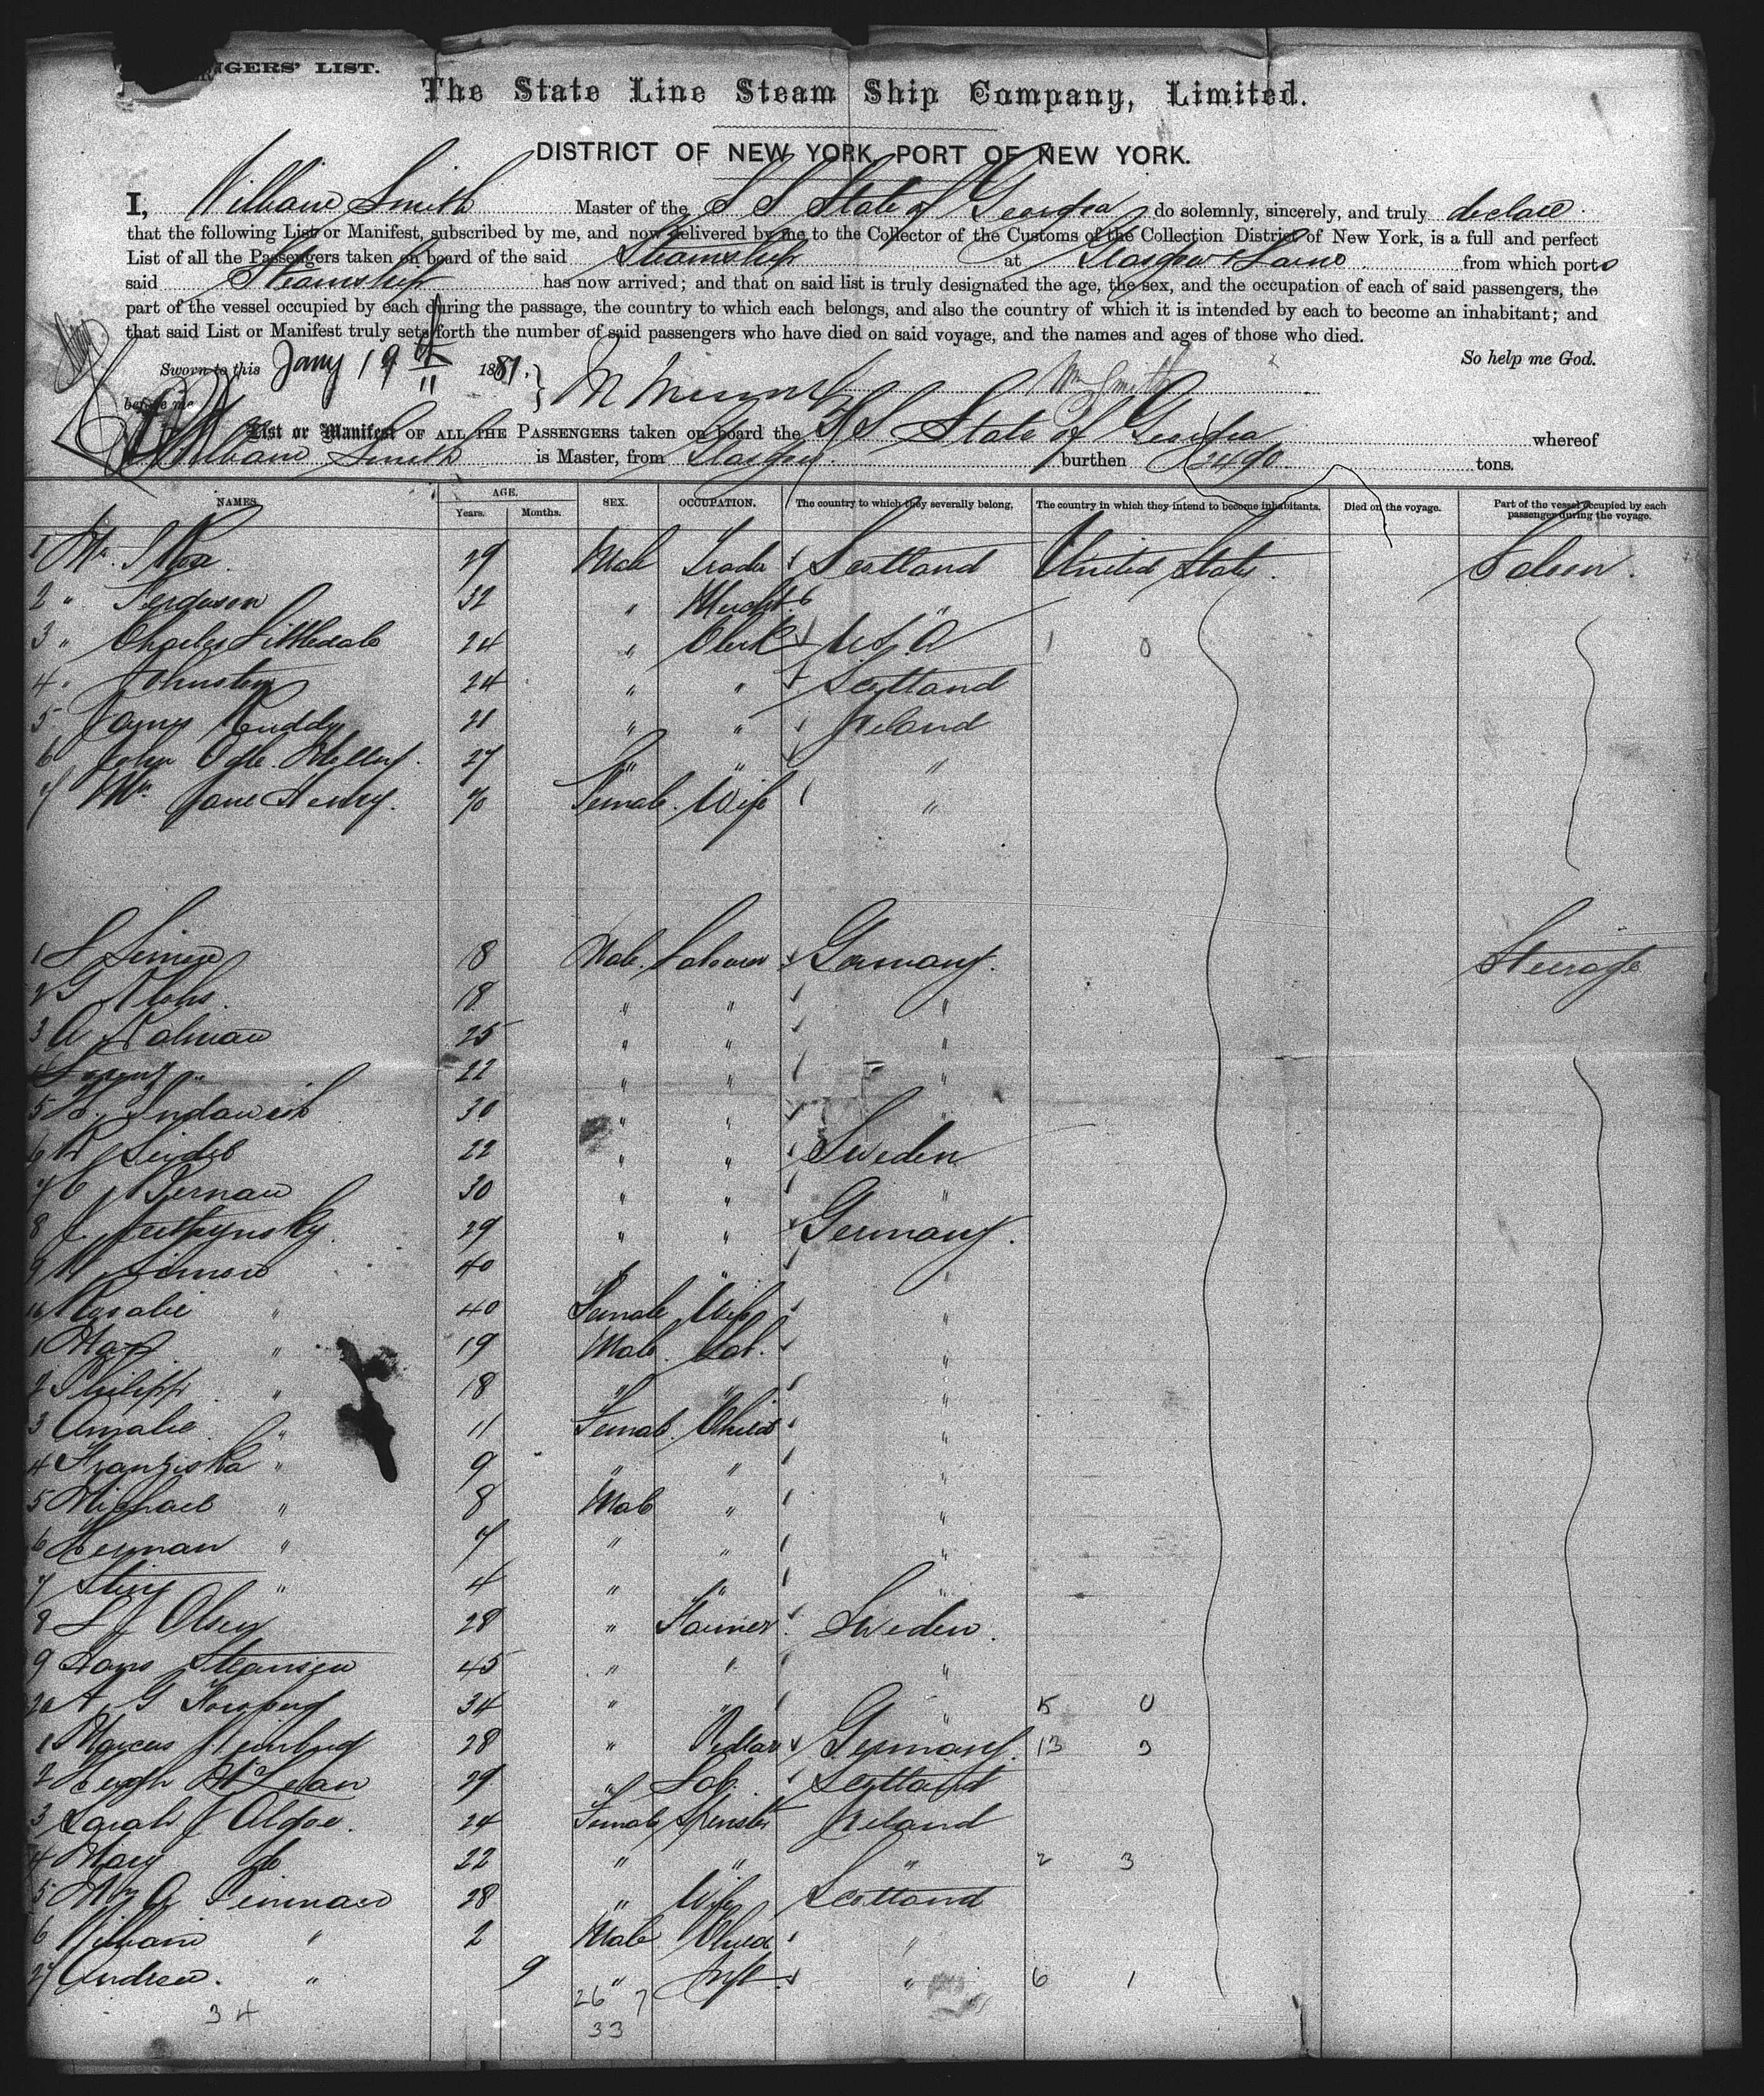 NGERS' LIST.
The State Line Steam Ship Company, Limited.
DISTRICT OF NEW YORK, PORT OF NEW YORK.
I, William Smith Master of the S S State of Georgia do solemnly, sincerely, and truly declare
that the following List or Manifest, subscribed by me, and now delivered by me to the Collector of the Customs of the Collection District of New York, is a full and perfect
List of all the Passengers taken on board of the said Steamship at Glasgow & Larne from which ports
said Steamship has now arrived; and that on said list is truly designated the age, the sex, and the occupation of each of said passengers, the
part of the vessel occupied by each during the passage, the country to which each belongs, and also the country of which it is intended by each to become an inhabitant; and
that said List or Manifest truly sets forth the number of said passengers who have died on said voyage, and the names and ages of those who died.
So help me God.
Sworn to this Jany 19th 1881. Wm Smith
before me
List or Manifest OF ALL THE PASSENGERS taken on board the SS State of Georgia whereof
William Smith is Master, from Glasgow burthen 2490 tons.
NAMES. AGE. Years. Months. SEX. OCCUPATION. The country to which they severally belong, The country in which they intend to become inhabitants. Died on the voyage. Part of the vessel occupied by each passenger during the voyage.
1 Mr. 29 Male Scotland United States. Saloon.
2 " Ferguson 32 " Mercht. "
3 " Charles Littledale 24 " Clerk U.S.A 1 0
4 " Johnston 24 " " Scotland
5 James Ruddy 21 " " Ireland
6 John 27 " " "
7 Mrs. Jane Henry. 70 Female. Wife "
1 18 Male. Labourer Germany. Steerage
2 G 18 " " "
3 A Kalman 25 " " "
22 " " "
5 30 " " "
6 22 " " Sweden
7 C 30 " " "
8 J 29 " " Germany.
9 Simon 40 " " "
10 Rosalie " 40 Female Wife "
1 Max " 19 Male. Lab. "
2 Philipp " 18 " " "
3 Amalie " 11 Female. Child "
4 Franziska " 9 " " "
5 Michael " 8 Male " "
6 Herman " 7 " " "
7 " 4 " " "
8 L J Olsen 28 " Farmer. Sweden.
9 Hans 45 " " "
20 A G 34 " " " 5 0
1 Marcus 28 " Pedlar Germany. 13 3
2 Hugh McLean 29 " Lab. Scotland
3 Sarah J Algoe. 24 Female Spinster Ireland
4 Mary Do 22 " " " 2 3
5 Mrs A 28 " Wife Scotland
6 William " 2 Male Child "
27 Andrew. " 9 " Inft " 6 1
34 26 7
33